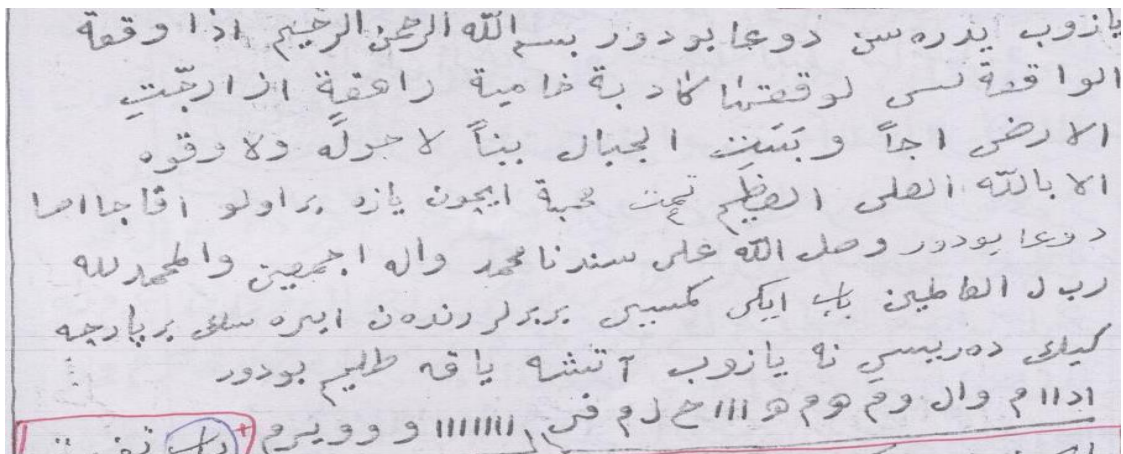 يازوب يدره سن دوعا بودور بسم الله الرحمن الرحيم اذا وقعة
الواقعة لسى لوقعتها كاد بة خامية رافعة از ارجّتِ
الارض اجاً و بَسَتِ الجبال بتاً لا حولَه ولا وقوه
الا بالله العلى العظيم تمت محبة ايچون يازه براولو اقاجا اصا
دوعا بودور وصل الله على سندنا محمد واله اجمعين والحمد لله
ربل العاطمين باب ايكى كمسيى بربرلرندن ايره سك برپارچه
كيك دەريسي نه يازوب آتشه ياقه طلم بودور
اداام وال وم هوم هو ااا ح لام فى ااااااا و وويرم
باب